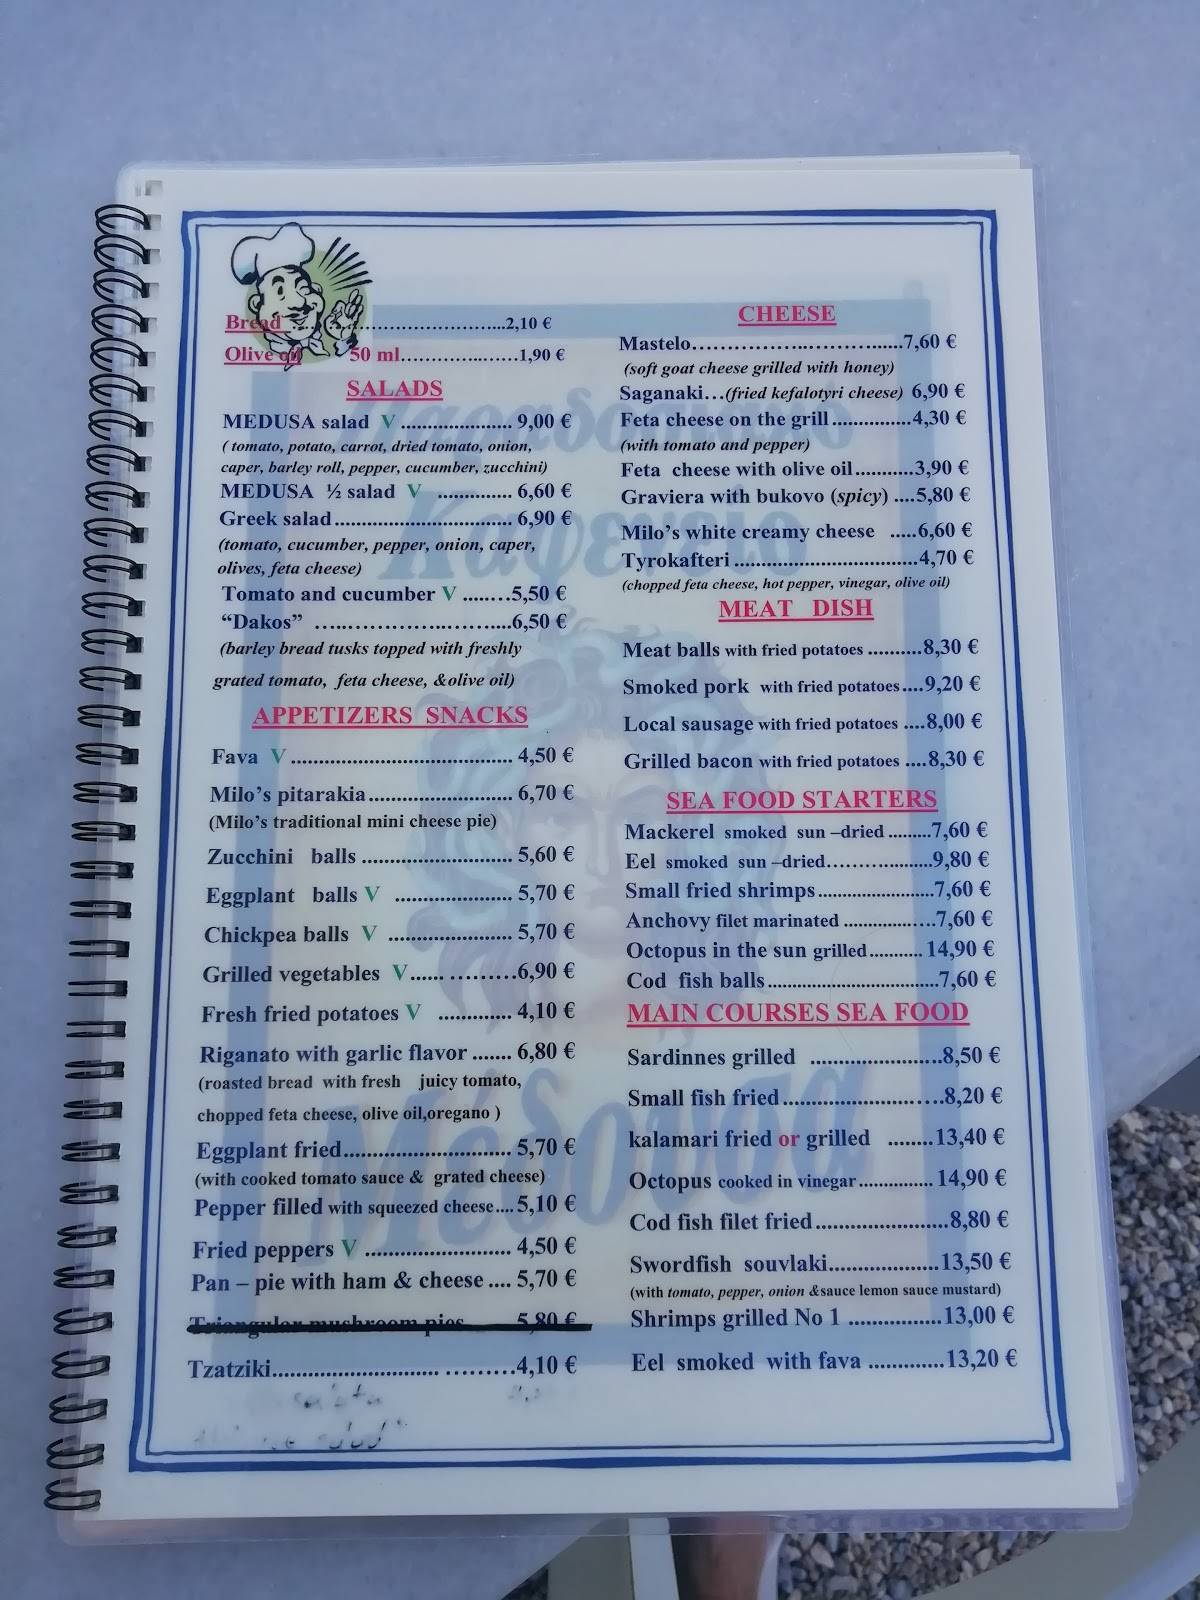 Bread ..............................2,10 €
Olive oil 50 ml.....................1,90 €
SALADS
MEDUSA salad V .................... 9,00 €
( tomato, potato, carrot, dried tomato, onion,
caper, barley roll, pepper, cucumber, zucchini)
MEDUSA ½ salad V ............. 6,60 €
Greek salad................................ 6,90 €
(tomato, cucumber, pepper, onion, caper,
olives, feta cheese)
Tomato and cucumber V .........5,50 €
“Dakos” ...............................6,50 €
(barley bread tusks topped with freshly
grated tomato, feta cheese, &olive oil)
APPETIZERS SNACKS
Fava V ........................................ 4,50 €
Milo’s pitarakia.......................... 6,70 €
(Milo’s traditional mini cheese pie)
Zucchini balls ........................... 5,60 €
Eggplant balls V ..................... 5,70 €
Chickpea balls V ...................... 5,70 €
Grilled vegetables V...... .........6,90 €
Fresh fried potatoes V ............. 4,10 €
Riganato with garlic flavor ....... 6,80 €
(roasted bread with fresh juicy tomato,
chopped feta cheese, olive oil,oregano )
Eggplant fried.............................. 5,70 €
(with cooked tomato sauce & grated cheese)
Pepper filled with squeezed cheese.... 5,10 €
Fried peppers V .......................... 4,50 €
Pan – pie with ham & cheese .... 5,70 €
Triangular mushroom pies 5,80 €
Tzatziki.............................. .........4,10 €
CHEESE
Mastelo................................7,60 €
(soft goat cheese grilled with honey)
Saganaki...(fried kefalotyri cheese) 6,90 €
Feta cheese on the grill ..............4,30 €
(with tomato and pepper)
Feta cheese with olive oil...........3,90 €
Graviera with bukovo (spicy) ....5,80 €
Milo’s white creamy cheese .....6,60 €
Tyrokafteri .................................4,70 €
(chopped feta cheese, hot pepper, vinegar, olive oil)
MEAT DISH
Meat balls with fried potatoes ..........8,30 €
Smoked pork with fried potatoes....9,20 €
Local sausage with fried potatoes ....8,00 €
Grilled bacon with fried potatoes ....8,30 €
SEA FOOD STARTERS
Mackerel smoked sun –dried .........7,60 €
Eel smoked sun –dried...................9,80 €
Small fried shrimps.......................7,60 €
Anchovy filet marinated .................7,60 €
Octopus in the sun grilled........... 14,90 €
Cod fish balls..................................7,60 €
MAIN COURSES SEA FOOD
Sardinnes grilled ........................8,50 €
Small fish fried.............................8,20 €
kalamari fried or grilled ........13,40 €
Octopus cooked in vinegar............... 14,90 €
Cod fish filet fried........................8,80 €
Swordfish souvlaki....................13,50 €
(with tomato, pepper, onion &sauce lemon sauce mustard)
Shrimps grilled No 1 .................13,00 €
Eel smoked with fava .............13,20 €
Παραδοσιακό
Καφενείο
Μέδουσα